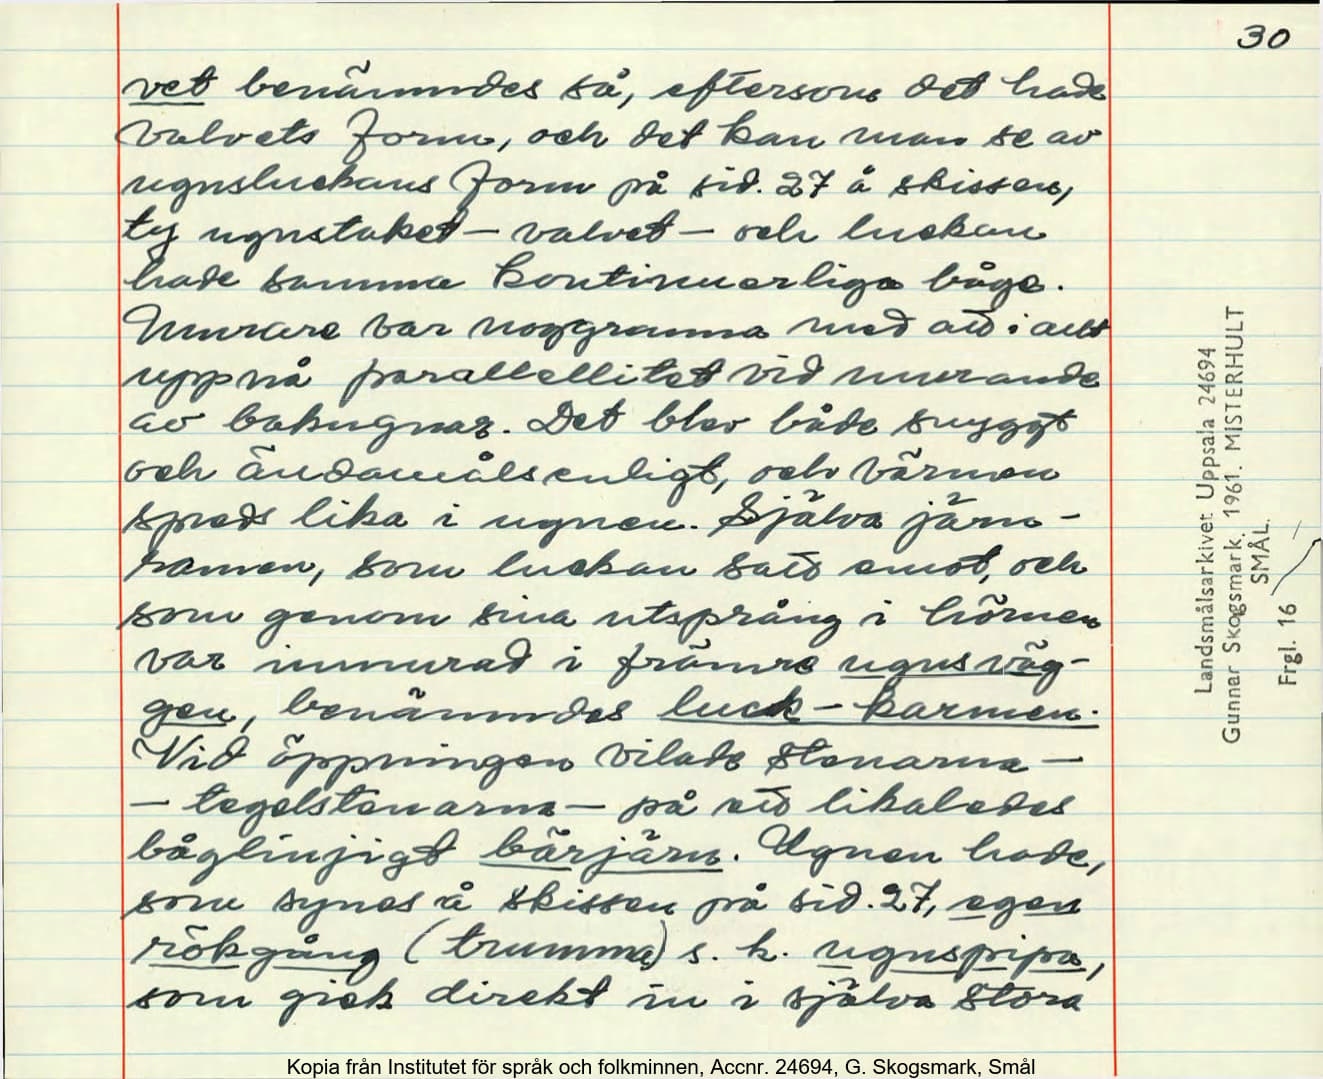 30
vet benämndes så, eftersom det hade
valvets form, och det kan man se av
ugnsluckans form på sid. 27 å skissen,
ty ugnstaket – valvet – och luckan
hade samma kontinuerliga båge.
Murare var noggranna med att i allt
uppnå parallellitet vid murande
av bakugnar. Det blev både snyggt
och ändamålsenligt, och värmen
spreds lika i ugnen. Själva järn-
ramen, som luckan satt emot, och
som genom sina utsprång i hörnen
var inmurad i främre ugnsväg-
gen, benämndes luck-karmen.
Vid öppningen vilade stenarna –
– tegelstenarna – på ett likaledes
båglinjigt bärjärn. Ugnen hade,
som synes å skissen på sid. 27, egen
rökgång (trumma) s. k. ugnspipa,
som gick direkt in i själva stora
Landsmålsarkivet Uppsala 24694
Gunnar Skogsmark. 1961. MISTERHULT
SMÅL.
Frgl. 16
Kopia från Institutet för språk och folkminnen, Accnr. 24694, G. Skogsmark, Smål